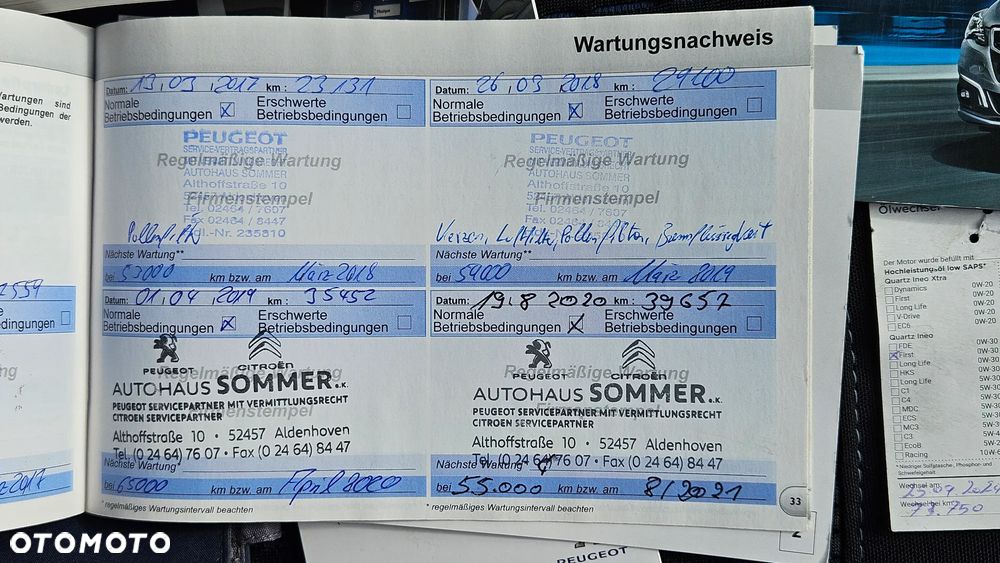 Wartungsnachweis
Wartungen sind
Bedingungen der
werden.
Datum: 13.03.2017 km: 23131
Normale Betriebsbedingungen
Erschwerte Betriebsbedingungen
PEUGEOT
SERVICE-VERTRAGSPARTNER
Regelmäßige Wartung
AUTOHAUS SOMMER
Althoffstraße 10
Firmenstempel
Tel. 02464 / 7607
Fax 02464 / 8447
Hdl.-Nr. 235810
Pollenfilter
Nächste Wartung**
bei 53000 km bzw. am März 2018
Datum: 26.03.2018 km: 29400
Normale Betriebsbedingungen
Erschwerte Betriebsbedingungen
PEUGEOT
SERVICE-VERTRAGSPARTNER
Regelmäßige Wartung
AUTOHAUS SOMMER
Althoffstraße 10
Firmenstempel
Tel. 02464 / 7607
Fax 02464 / 8447
Hdl.-Nr. 235810
Kerzen, Luftfilter, Pollenfilter, Bremflüssigkeit
Nächste Wartung**
bei 59000 km bzw. am März 2019
Datum: 01.04 2019 km: 35452
Normale Betriebsbedingungen
Erschwerte Betriebsbedingungen
PEUGEOT CITROËN
Regelmäßige Wartung
AUTOHAUS SOMMER e.K.
PEUGEOT SERVICEPARTNER MIT VERMITTLUNGSRECHT
Firmenstempel
CITROEN SERVICEPARTNER
Althoffstraße 10 • 52457 Aldenhoven
Tel. (0 24 64) 76 07 • Fax (0 24 64) 84 47
Nächste Wartung**
bei 65000 km bzw. am April 2020
* regelmäßiges Wartungsintervall beachten
Datum: 19.8 2020 km: 39657
Normale Betriebsbedingungen
Erschwerte Betriebsbedingungen
PEUGEOT CITROËN
Regelmäßige Wartung
AUTOHAUS SOMMER e.K.
PEUGEOT SERVICEPARTNER MIT VERMITTLUNGSRECHT
Firmenstempel
CITROEN SERVICEPARTNER
Althoffstraße 10 • 52457 Aldenhoven
Tel. (0 24 64) 76 07 • Fax (0 24 64) 84 47
Nächste Wartung**
bei 55.000 km bzw. am 8/2021
* regelmäßiges Wartungsintervall beachten
33
2
PEUGEOT
Ölwechsel
Der Motor wurde befüllt mit
Hochleistungsöl low SAPS*
Quartz Ineo Xtra
Dynamics 0W-20
First 0W-20
Long Life 0W-20
V-Drive 0W-20
EC6 0W-20
Quartz Ineo
FDE 0W-30
First 0W-30
Long Life 0W-30
HKS 5W-30
Long Life 5W-30
C1 5W-30
C4 5W-30
MDC 5W-30
ECS 5W-30
MC3 5W-30
C3
EcoB
Racing
*Niedriger Sulfatasche-, Phosphor- und Schwefelgehalt
Wechsel am
Wechsel bei km
73.750
OTOMOTO